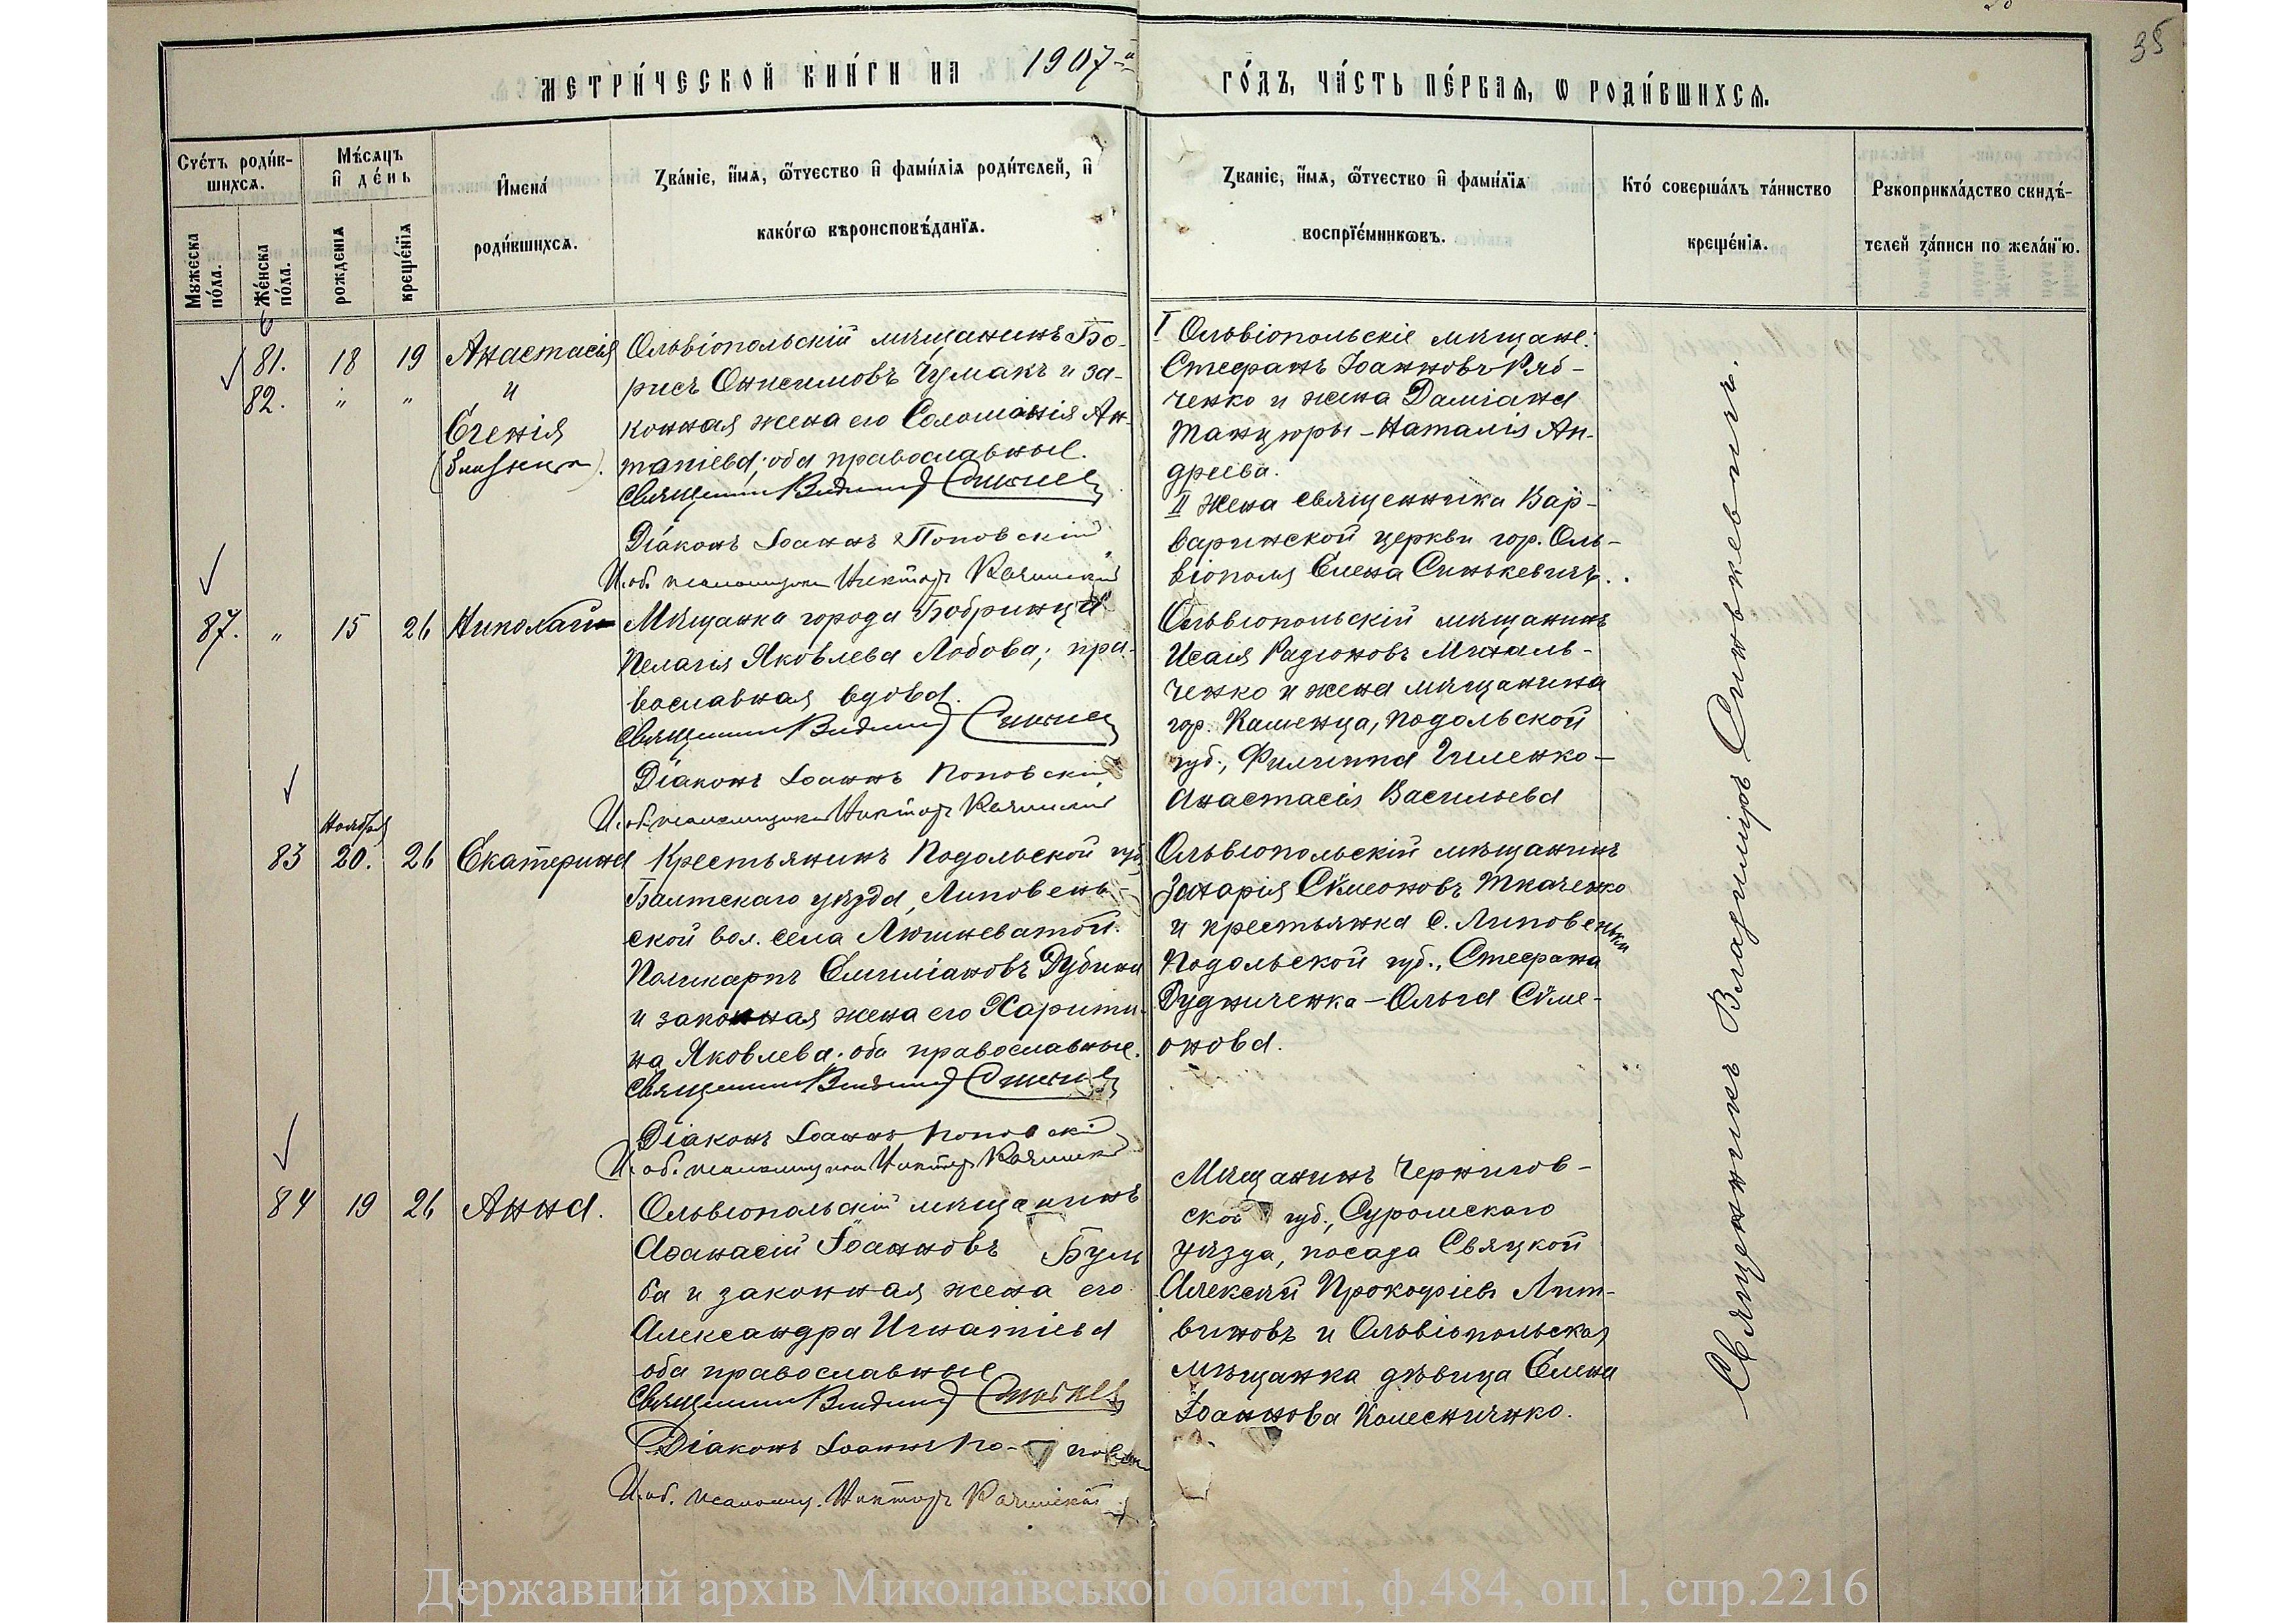 35
МЕТРИ́ЧЕСКОЙ КНИ́ГИ НА 1907-й
ГО́ДЪ, ЧА́СТЬ ПЕ́РВАѦ, Ѡ РОДИ́ВШИХСѦ.
Сче́тъ роди́в-
шихсѧ.
Мꙋжеска по́ла.
Же́нска по́ла.
Мѣ́сѧцъ
и҆ де́нь
рожденїѧ
креще́нїѧ
И҆мена́
роди́вшихсѧ.
Зва́нїе, и҆́мѧ, ѻ҆́тчество и҆ фами́лїѧ роди́телей, и҆
како́гѡ вѣроисповѣ́данїѧ.
Званїе, и҆́мѧ, ѻ҆́тчество и҆ фами́лїѧ
воспрїе́мникѡвъ.
Кто́ соверша́лъ та́инство
креще́нїѧ.
Рꙋкоприкла́дство свидѣ́-
телей за́писи по жела́нїю.
81. 18 19 Анастасія
82. " "
и
Евгенія
Ольвіопольскій мѣщанинъ Бо-
рисъ Онисимовъ Чумакъ и за-
конная жена его Соломонія Ан-
тоніева; оба православные.
Священникъ Владимиръ Синькевичъ
Діаконъ Іоаннъ Поповскій
И. об. псаломщика Виктор
I Ольвіопольскіе мѣщане:
Стефанъ Іоанновъ Ряб-
ченко и жена Даміана
Танцюры - Наталія Ан-
дреева.
II Жена священника Вар-
варинской церкви гор. Оль-
віополя Елена Синькевичъ.
87. " 15 26 Николай
Мѣщанка города Бобринца
Пелагія Яковлева Лобова; пра-
вославная вдова.
Священникъ Владимиръ Синькевичъ
Діаконъ Іоаннъ Поповскій
И. об. псаломщика Виктор
Ольвіопольскій мѣщанинъ
Исаія Радіоновъ Михаль-
ченко и жена мѣщанина
гор. Каменца, Подольской
губ., Филиппа Гиленко -
Анастасія Васильева
Ноября
83 20. 26 Екатерина
Крестьянинъ Подольской губ.
Балтскаго уѣзда, Липовень-
ской вол. села Люшневатой.
Поликарпъ Емиліановъ Дубина
и законная жена его Харити-
на Яковлева; оба православные.
Священникъ Владимиръ Синькевичъ
Діаконъ Іоаннъ Поповскій
И. об. псаломщика Виктор
Ольвіопольскій мѣщанинъ
Захарія Сѵмеоновъ Ткаченко
и крестьянка с. Липовеньки
Подольской губ., Стефана
Дудниченка - Ольга Сѵме-
онова.
84 19 26 Анна.
Ольвіопольскій мѣщанинъ
Аѳанасій Іоанновъ Буль
ба и законная жена его
Александра Игнатіева
оба православные
Священникъ Владимиръ Синькевичъ
Діаконъ Іоаннъ По- повскій
И. об. псаломщ. Виктор
Мѣщанинъ Чернигов-
ской губ., Суражскаго
уѣзда, посада Святской
Алексѣй Прокофіевъ Лит-
виновъ и Ольвіопольская
мѣщанка дѣвица Елена
Іоаннова Колесниченко.
Священникъ Владиміръ Синькевичъ.
Державний архів Миколаївської області, ф.484, оп.1, спр.2216